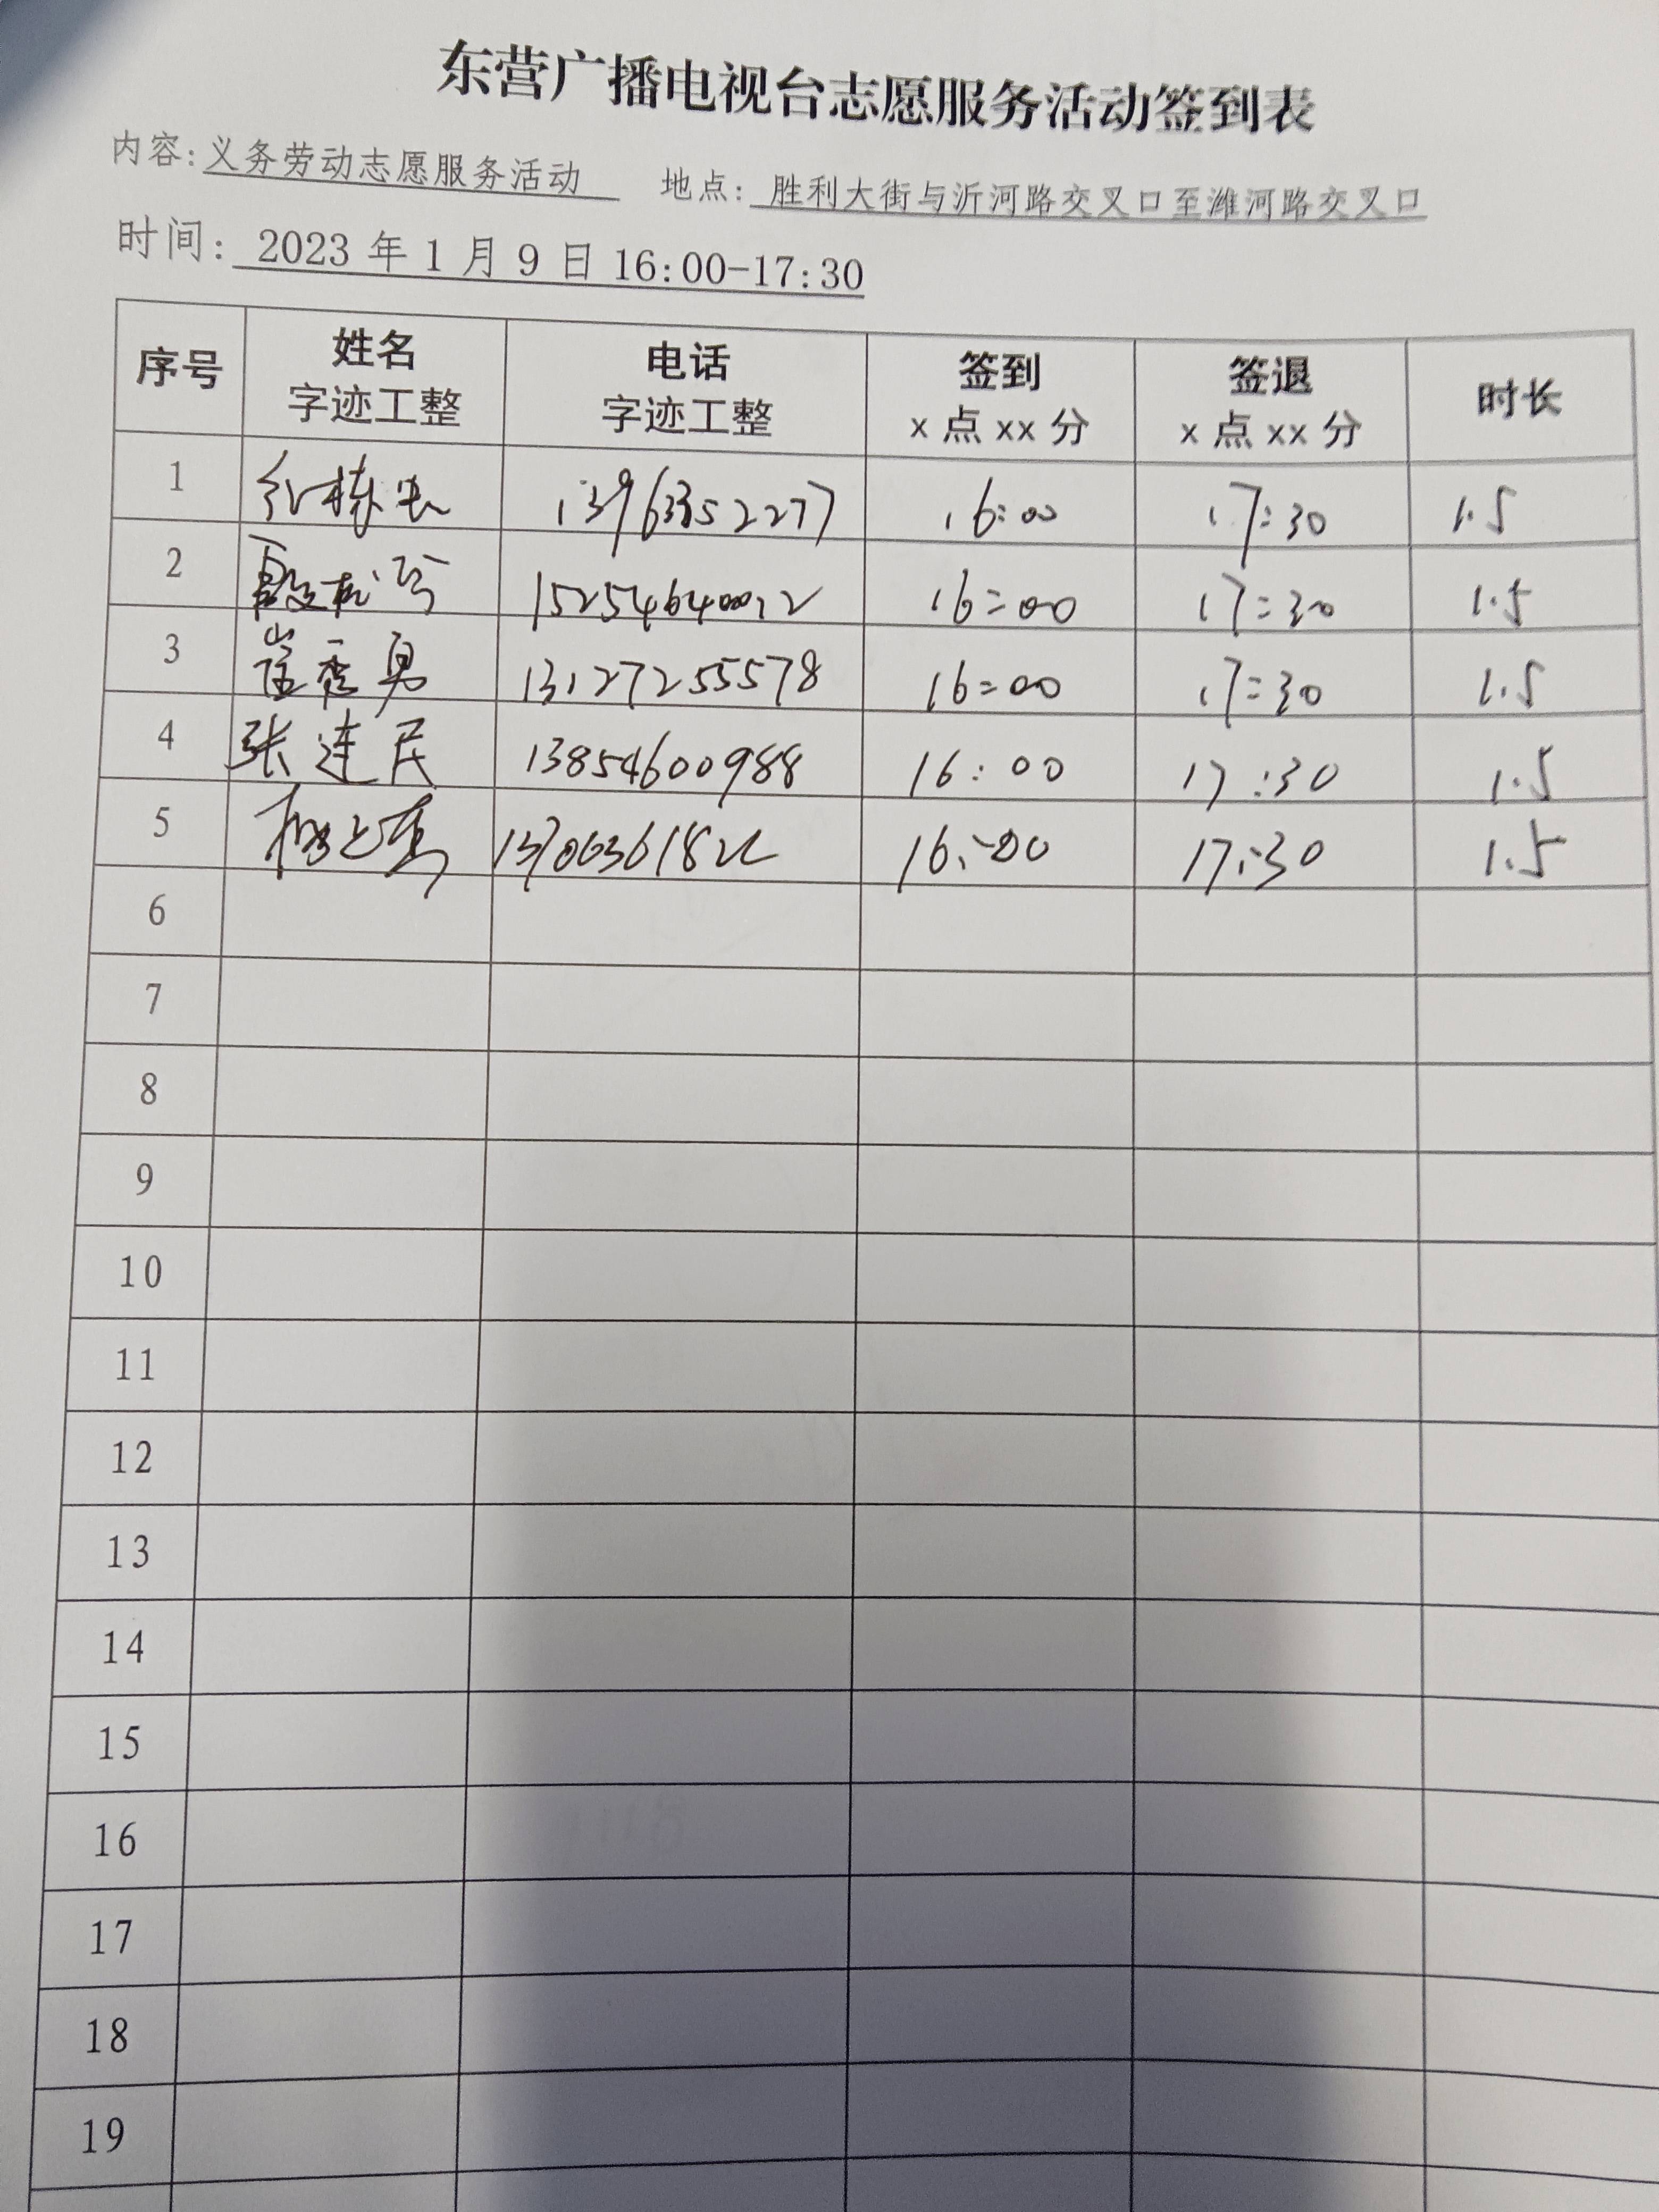 东营广播电视台志愿服务活动签到表
内容:义务劳动志愿服务活动 地点: 胜利大街与沂河路交叉口至潍河路交叉口
时间: 2023 年 1 月 9 日 16:00-17:30
序号 姓名 字迹工整 电话 字迹工整 签到 x 点 xx 分 签退 x 点 xx 分 时长
1 16:00 17:30 1.5
2 15254640012 16:00 17:30 1.5
3 崔秀男 13127255578 16:00 17:30 1.5
4 张连民 13854600988 16:00 17:30 1.5
5 16:00 17:30 1.5
6
7
8
9
10
11
12
13
14
15
16
17
18
19